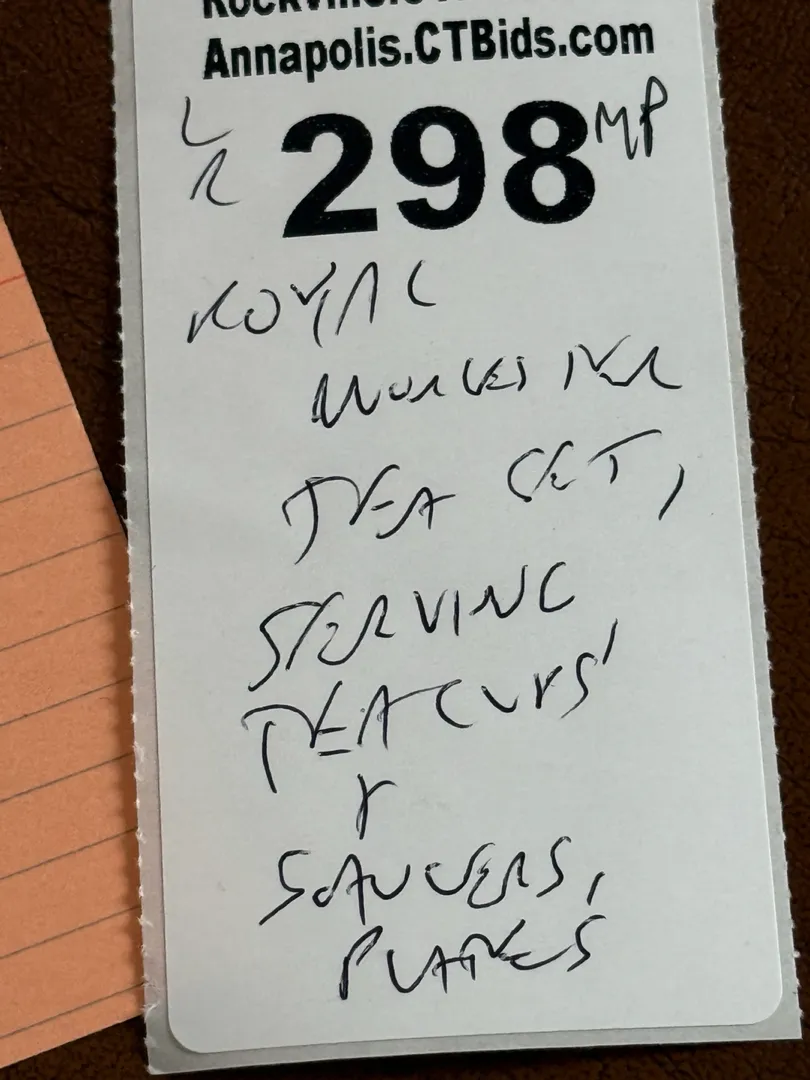 Annapolis.CTBids.com
LR 298 MP
ROYAL
WORCESTER
TEA SET,
SERVING
TEACUPS,
+
SAUCERS,
PLATES